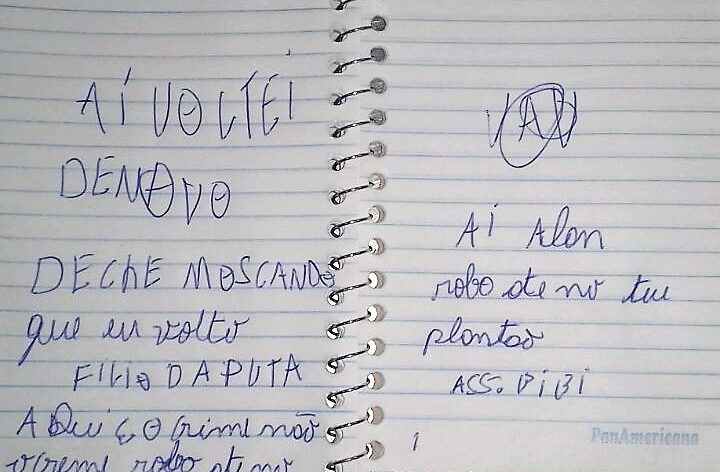 AÍ VOLTEI
DENOVO
DECHE MOSCANDO
que eu volto
FILIO DAPUTA
AQui é O crime não
robo ate no
AÍ Alan
robo ate no teu
plantaõ
ASS. BiBi
1
PanAmericana